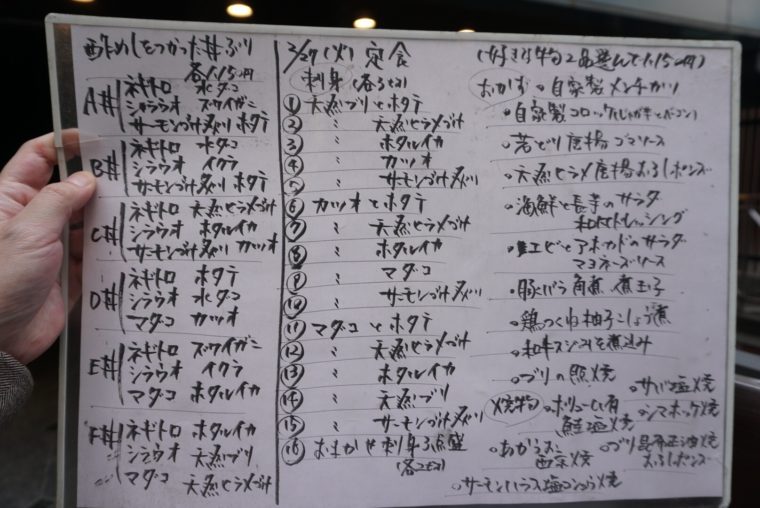 酢めしをつかった丼ぶり
各1,115円
A丼 ネギトロ 水ダコ
シラウオ ズワイガニ
サーモンづけ炙り ホタテ
B丼 ネギトロ 水ダコ
シラウオ イクラ
サーモンづけ炙り ホタテ
C丼 ネギトロ 天然ヒラメづけ
シラウオ ホタルイカ
サーモンづけ炙り カツオ
D丼 ネギトロ ホタテ
シラウオ 水ダコ
マダコ カツオ
E丼 ネギトロ ズワイガニ
シラウオ イクラ
マダコ ホタルイカ
F丼 ネギトロ ホタルイカ
シラウオ 天然ブリ
マダコ 天然ヒラメづけ
3/27(火) 定食
刺身(各3切)
① 天然ブリとホタテ
② 〃 天然ヒラメづけ
③ 〃 ホタルイカ
④ 〃 カツオ
⑤ 〃 サーモンづけ炙り
⑥ カツオとホタテ
⑦ 〃 天然ヒラメづけ
⑧ 〃 ホタルイカ
⑨ 〃 マダコ
⑩ 〃 サーモンづけ炙り
⑪ マダコとホタテ
⑫ 〃 天然ヒラメづけ
⑬ 〃 ホタルイカ
⑭ 〃 天然ブリ
⑮ 〃 サーモンづけ炙り
⑯ おまかせ刺身3点盛
(各2切)
(好きな物2品選んで1,115円)
おかず 。自家製メンチカツ
。自家製コロッケ(じゃがキとベーコン)
。若どり唐揚ゴマソース
。天然ヒラメ唐揚おろしポンズ
。海鮮と長芋のサラダ
和風ドレッシング
。エビとアボカドのサラダ
マヨネーズソース
。豚バラ角煮、煮玉子
。鶏つくね柚子こしょう煮
。和牛スジ煮込み
。ブリの照焼
焼物 。ボリューム有
鮭塩焼
。サバ塩焼
。シマホッケ焼
。あかうお
西京焼
。ブリ昆布正油焼
おろしポンズ
。サーモンハラス塩こんぶ焼